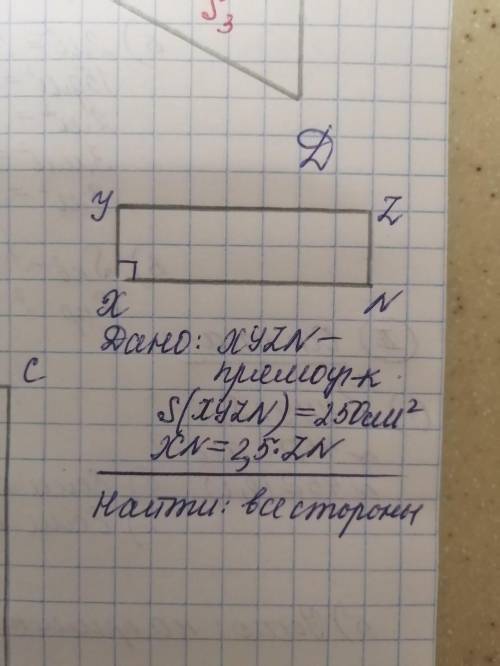 S3
D
Y
Z
X
N
C
Дано: XYZN –
прямоуг-к.
S(XYZN) = 250см²
XN = 2,5·ZN
Найти: все стороны